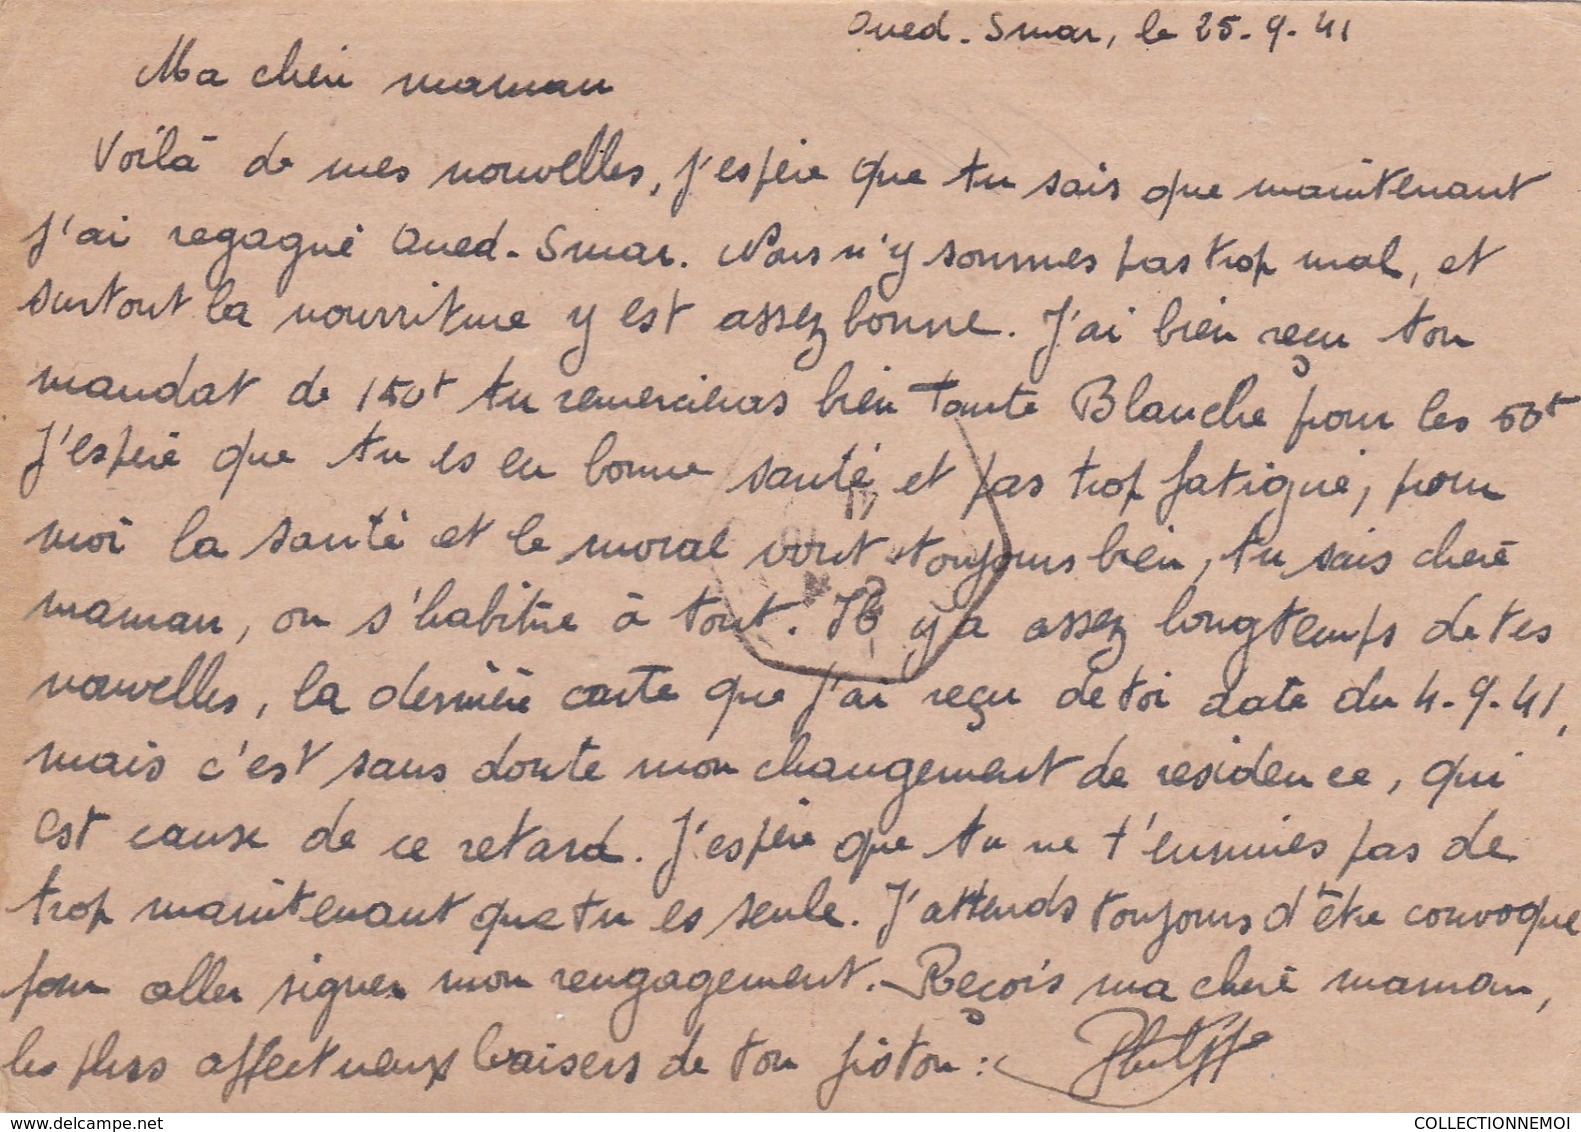 Oued-Smar, le 25-9-41
Ma chère maman
Voilà de mes nouvelles, j'espère que tu sais que maintenant
j'ai regagné Oued-Smar. Nous n'y sommes pas trop mal, et
surtout la nourriture y est assez bonne. J'ai bien reçu ton
mandat de 150f tu remercieras bien Tante Blanche pour les 50f
J'espère que tu es en bonne santé, et pas trop fatigué, pour
moi la santé et le moral vont toujours bien, tu sais chère
maman, on s'habitue à tout. Il y a assez longtemps de tes
nouvelles, la dernière carte que j'ai reçu de toi date du 4-9-41,
mais c'est sans doute mon changement de residence, qui
est cause de ce retard. J'espère que tu ne t'ennuies pas de
trop maintenant que tu es seule. J'attends toujours d'être convoque
pour aller signer mon rengagement. Reçois ma chère maman,
les plus affectueux baisers de ton fiston :
COLLECTIONNEMOI